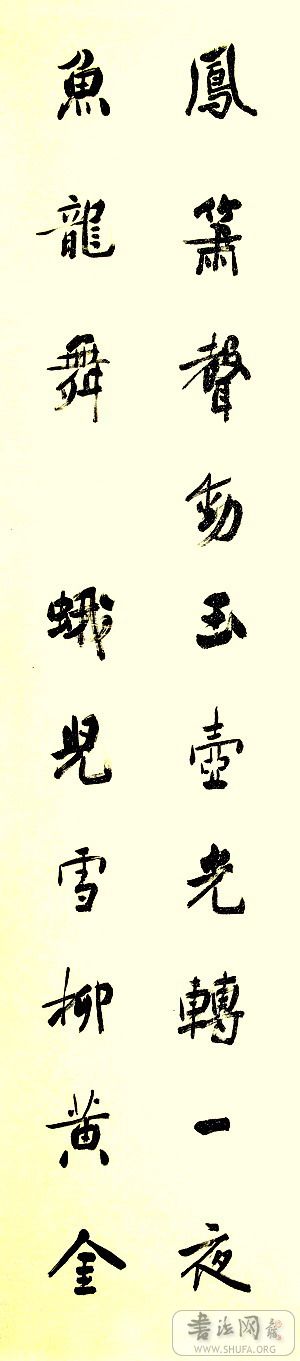 鳳簫聲動玉壺光轉一夜
魚龍舞 蛾兒雪柳黃金
书法网
WWW.SHUFA.ORG